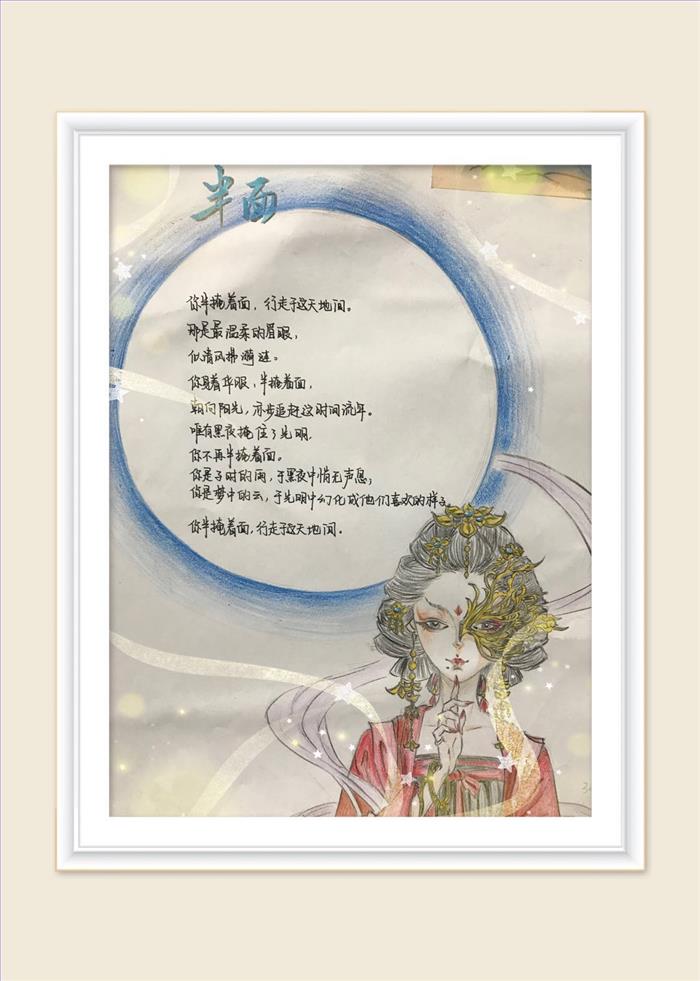 半面
你半掩着面，行走于这天地间。
那是最温柔的眉眼，
似清风拂漪涟。
你身着华服，半掩着面，
朝向阳光，亦步追赶这时间流年。
唯有黑夜掩住了光明，
你不再半掩着面。
你是子时的雨，于黑夜中悄无声息；
你是梦中的云，于光明中幻化成他们喜欢的样子
你半掩着面，行走于这天地间。